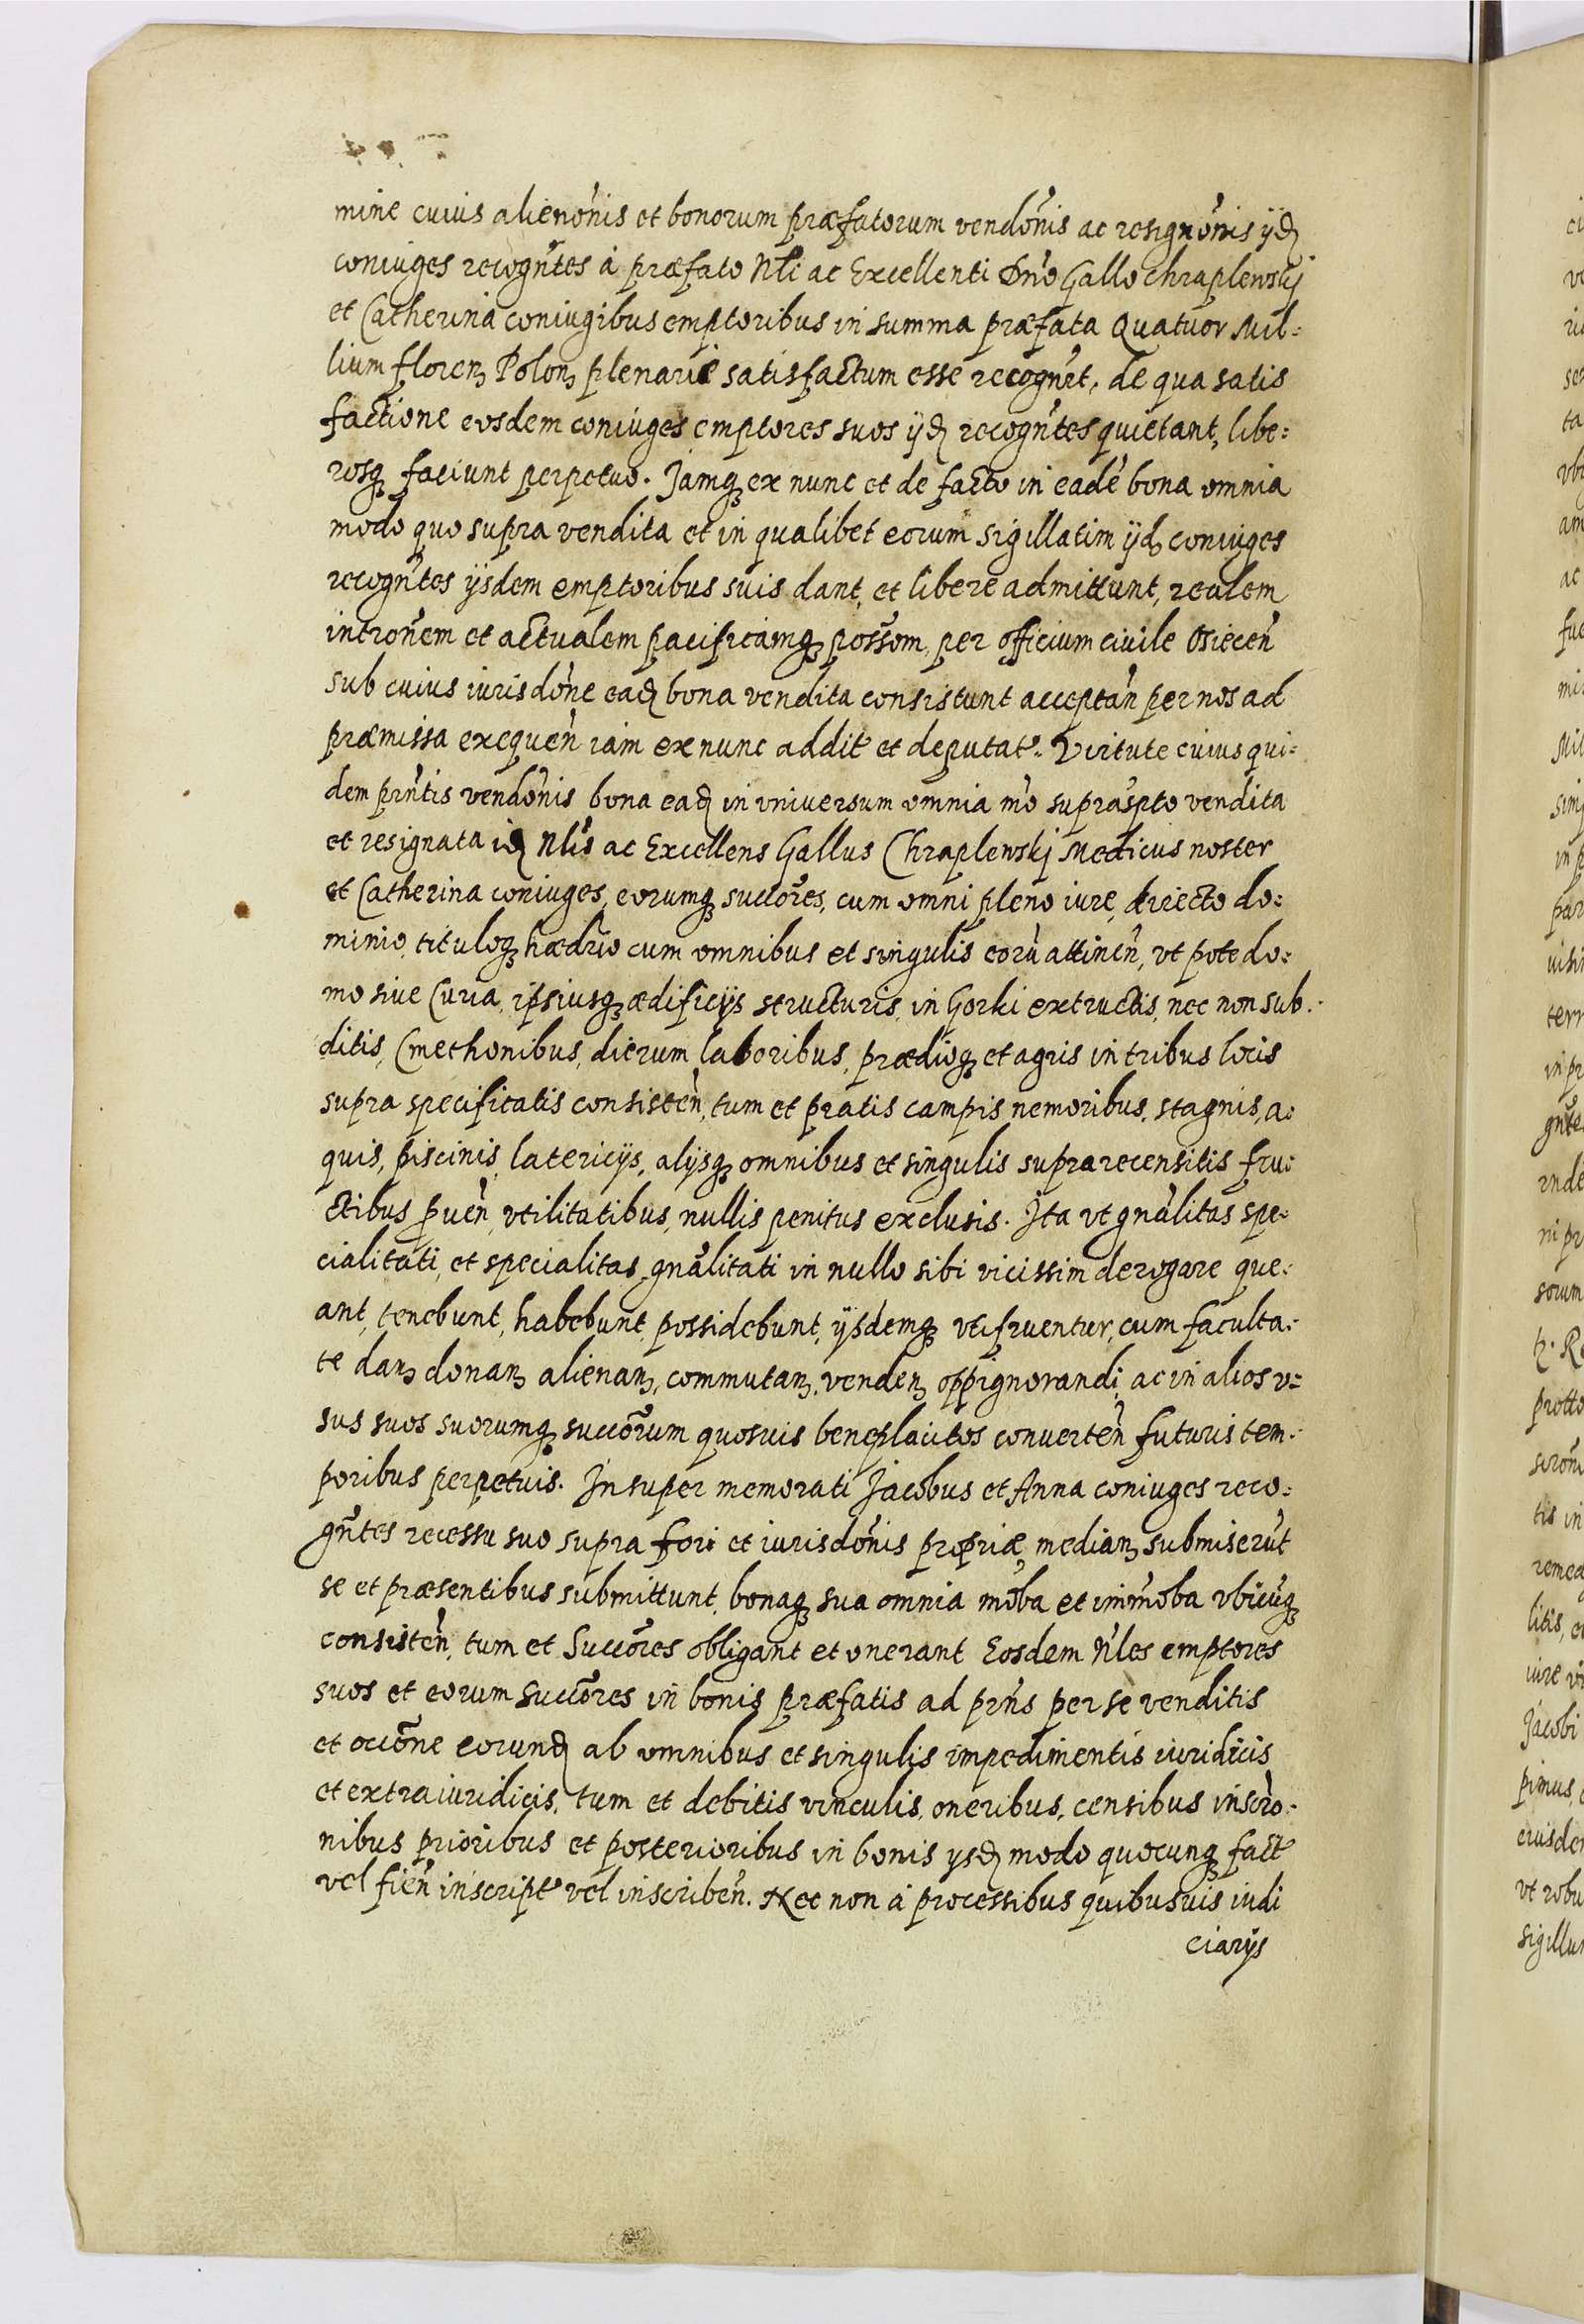 mine cuius alienõnis et bonorum præfatorum vendõnis ac resignõnis ÿdꝫ
coniuges recogñtes à præfato Nłi ac Excellenti Dño Gallo Chraplewskj
et Catherina coniugibus emptoribus in summa præfata Quatuor Mil:
lium florenꝫ Polonꝫ plenariè satisfactum esse recogñrt, de qua satis
factione eosdem coniuges emptores suos ÿdꝫ recogñtes quietant, libe:
rosqꝫ faciunt perpetuo. Jamqꝫ ex nunc et de facto in eadẽ bona omnia
modo quo supra vendita et in qualibet eorum sigillatim ÿdꝫ coniuges
recogñtes ÿsdem emptoribus suis dant, et libere admittunt, realem
intromẽm et actualem pacificamqꝫ posšom, per officium ciuile Osiecen̄
sub cuius iurisdõne eadꝫ bona vendita consistunt acceptan̄ per nos ad
præmissa exequen̄ iam ex nunc addit̉ et deputat̉. Virtute cuius qui:
dem prñtis vendõnis bona eadꝫ in vniuersum omnia mõ suprasp̃to vendita
et resignata idꝫ Nłis ac Excellens Gallus Chraplewskj Medicus noster
et Catherina coniuges, eorumqꝫ succõres, cum omni pleno iure, directo do:
minio, tituloqꝫ hædrio cum omnibus et singulis eorũ attinen̄, vt pote do:
mo siue Curia, ipsiusqꝫ ædificÿs structuris, in Gorki extructis, nec non sub:
ditis, Cmethonibus, dierum laboribus, prædioqꝫ et agris in tribus locis
supra specificatis consisten̄, tum et pratis campis nemoribus, stagnis, a:
quis, piscinis, latericÿs, alÿsqꝫ omnibus et singulis supra recensitis fru:
ctibus ꝓuen̄, vtilitatibus, nullis penitus exclusis. Ita vt gnãlitas spe:
cialitati, et specialitas gnãlitati in nullo sibi vicissim derogare que:
ant, tenebunt, habebunt, possidebunt, ÿsdemqꝫ vtifruentur, cum faculta:
te danꝫ donanꝫ alienanꝫ, commutanꝫ, vendenꝫ oppignorandi, ac in alios v=
sus suos suorumqꝫ succõrum quosuis beneplacitos conuerten̄ futuris tem:
poribus perpetuis. Insuper memorati Jacobus et Anna coniuges reco:
gñtes recessu suo supra fori et iurisdõnis propriæ, median̄ꝫ submiserũt
se et præsentibus submittunt, bonaqꝫ sua omnia mõba et immõba vbicũqꝫ
consisten̄, tum et Succõres obligant et onerant Eosdem Ñles emptores
suos et eorum succõres in bonis præfatis ad prñs per se venditis
et occõne eorundꝫ ab omnibus et singulis impedimentis iuridicis
et extraiuridicis, tum et debitis vinculis, oneribus, censibus inscrõ:
nibus prioribus et posterioribus in bonis ysdꝫ modo quocunqꝫ fact̉
vel fien̄ inscript̉ vel inscriben̄. Nec non à processibus quibusuis iudi
ciarÿs